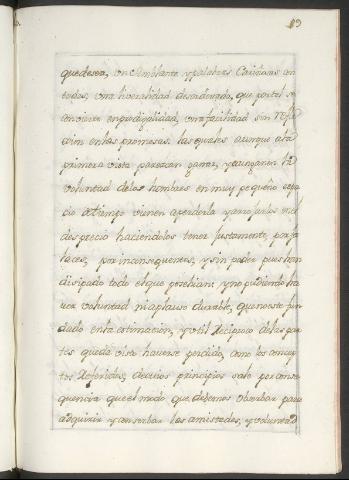 19
que desea, un semblante y palabras Cariñosas con
todos, una liveralidad desordenada, que por tal se
convierte en prodigalidad, una facilidad sin refle
xion en las promesas, las quales aunque a la
primera vista parezcan ganar, y aun ganen la
voluntad de los hombres en muy pequeño espa
cio de tiempo vienen a perderla y a
desprecio haciendolos tener Justamente, por fa
laces, por inconsequentes, y sin poder pues han
disipado todo el que posehian: y no pudiendo ha
ver voluntad ni aplauso durable, que no este fun
dado en la estimación, y util Reciproco de las par
tes queda visto haverse perdido, como los concep
tos Referidos, de cuios principios sale por conse
quencia que el modo que devemos observar para
adquirir y conserbar las amistades, y voluntad